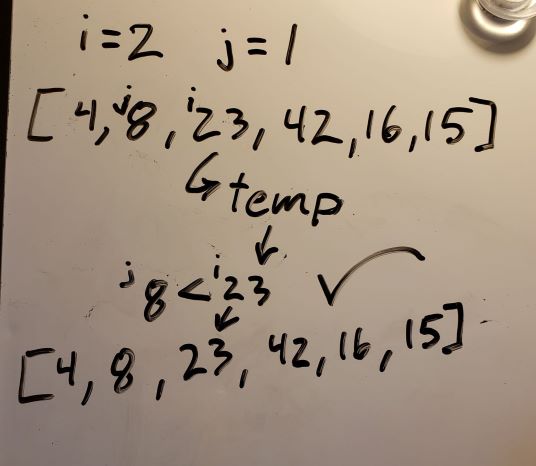 i=2 j=1
[4, j8, i23, 42, 16, 15]
↳ temp
↓
j8 < i23 ✓
↓
[4, 8, 23, 42, 16, 15]